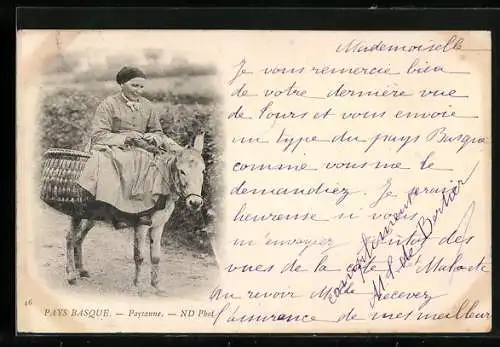 Mademoiselle
Je vous remercie bien
de votre dernière vue
de Tours et vous envoie
un type du pays Basque
comme vous me le
demandiez. Je serais
heureuse si vous
m'envoyiez des
vues de la
Au revoir Mlle recevez
l'assurance de mes meilleurs
sentiments
M. de Bertier
46
PAYS BASQUE. — Paysanne. — ND Phot.